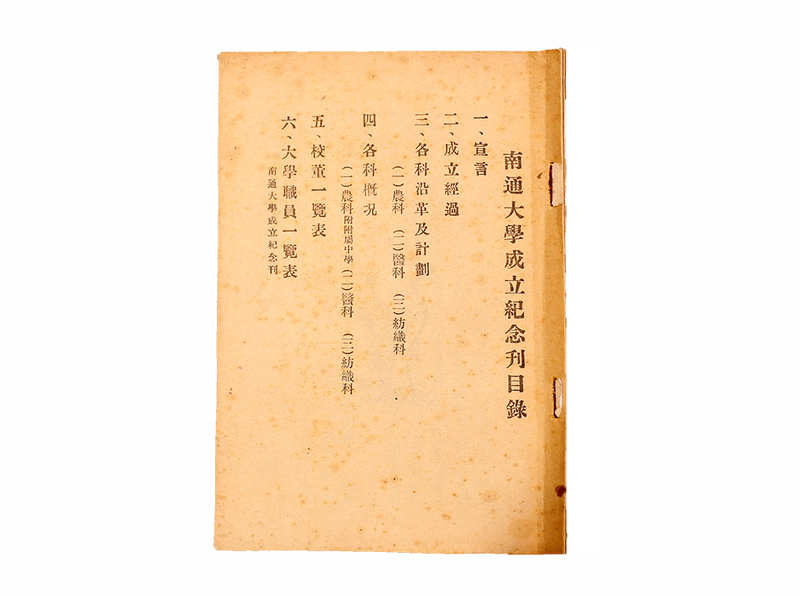 南通大學成立紀念刊目錄
一、宣言
二、成立經過
三、各科沿革及計劃
（一）農科　（二）醫科　（三）紡織科
四、各科概况
（一）農科附附屬中學（二）醫科　（三）紡織科
五、校董一覽表
六、大學職員一覽表
南通大學成立紀念刊